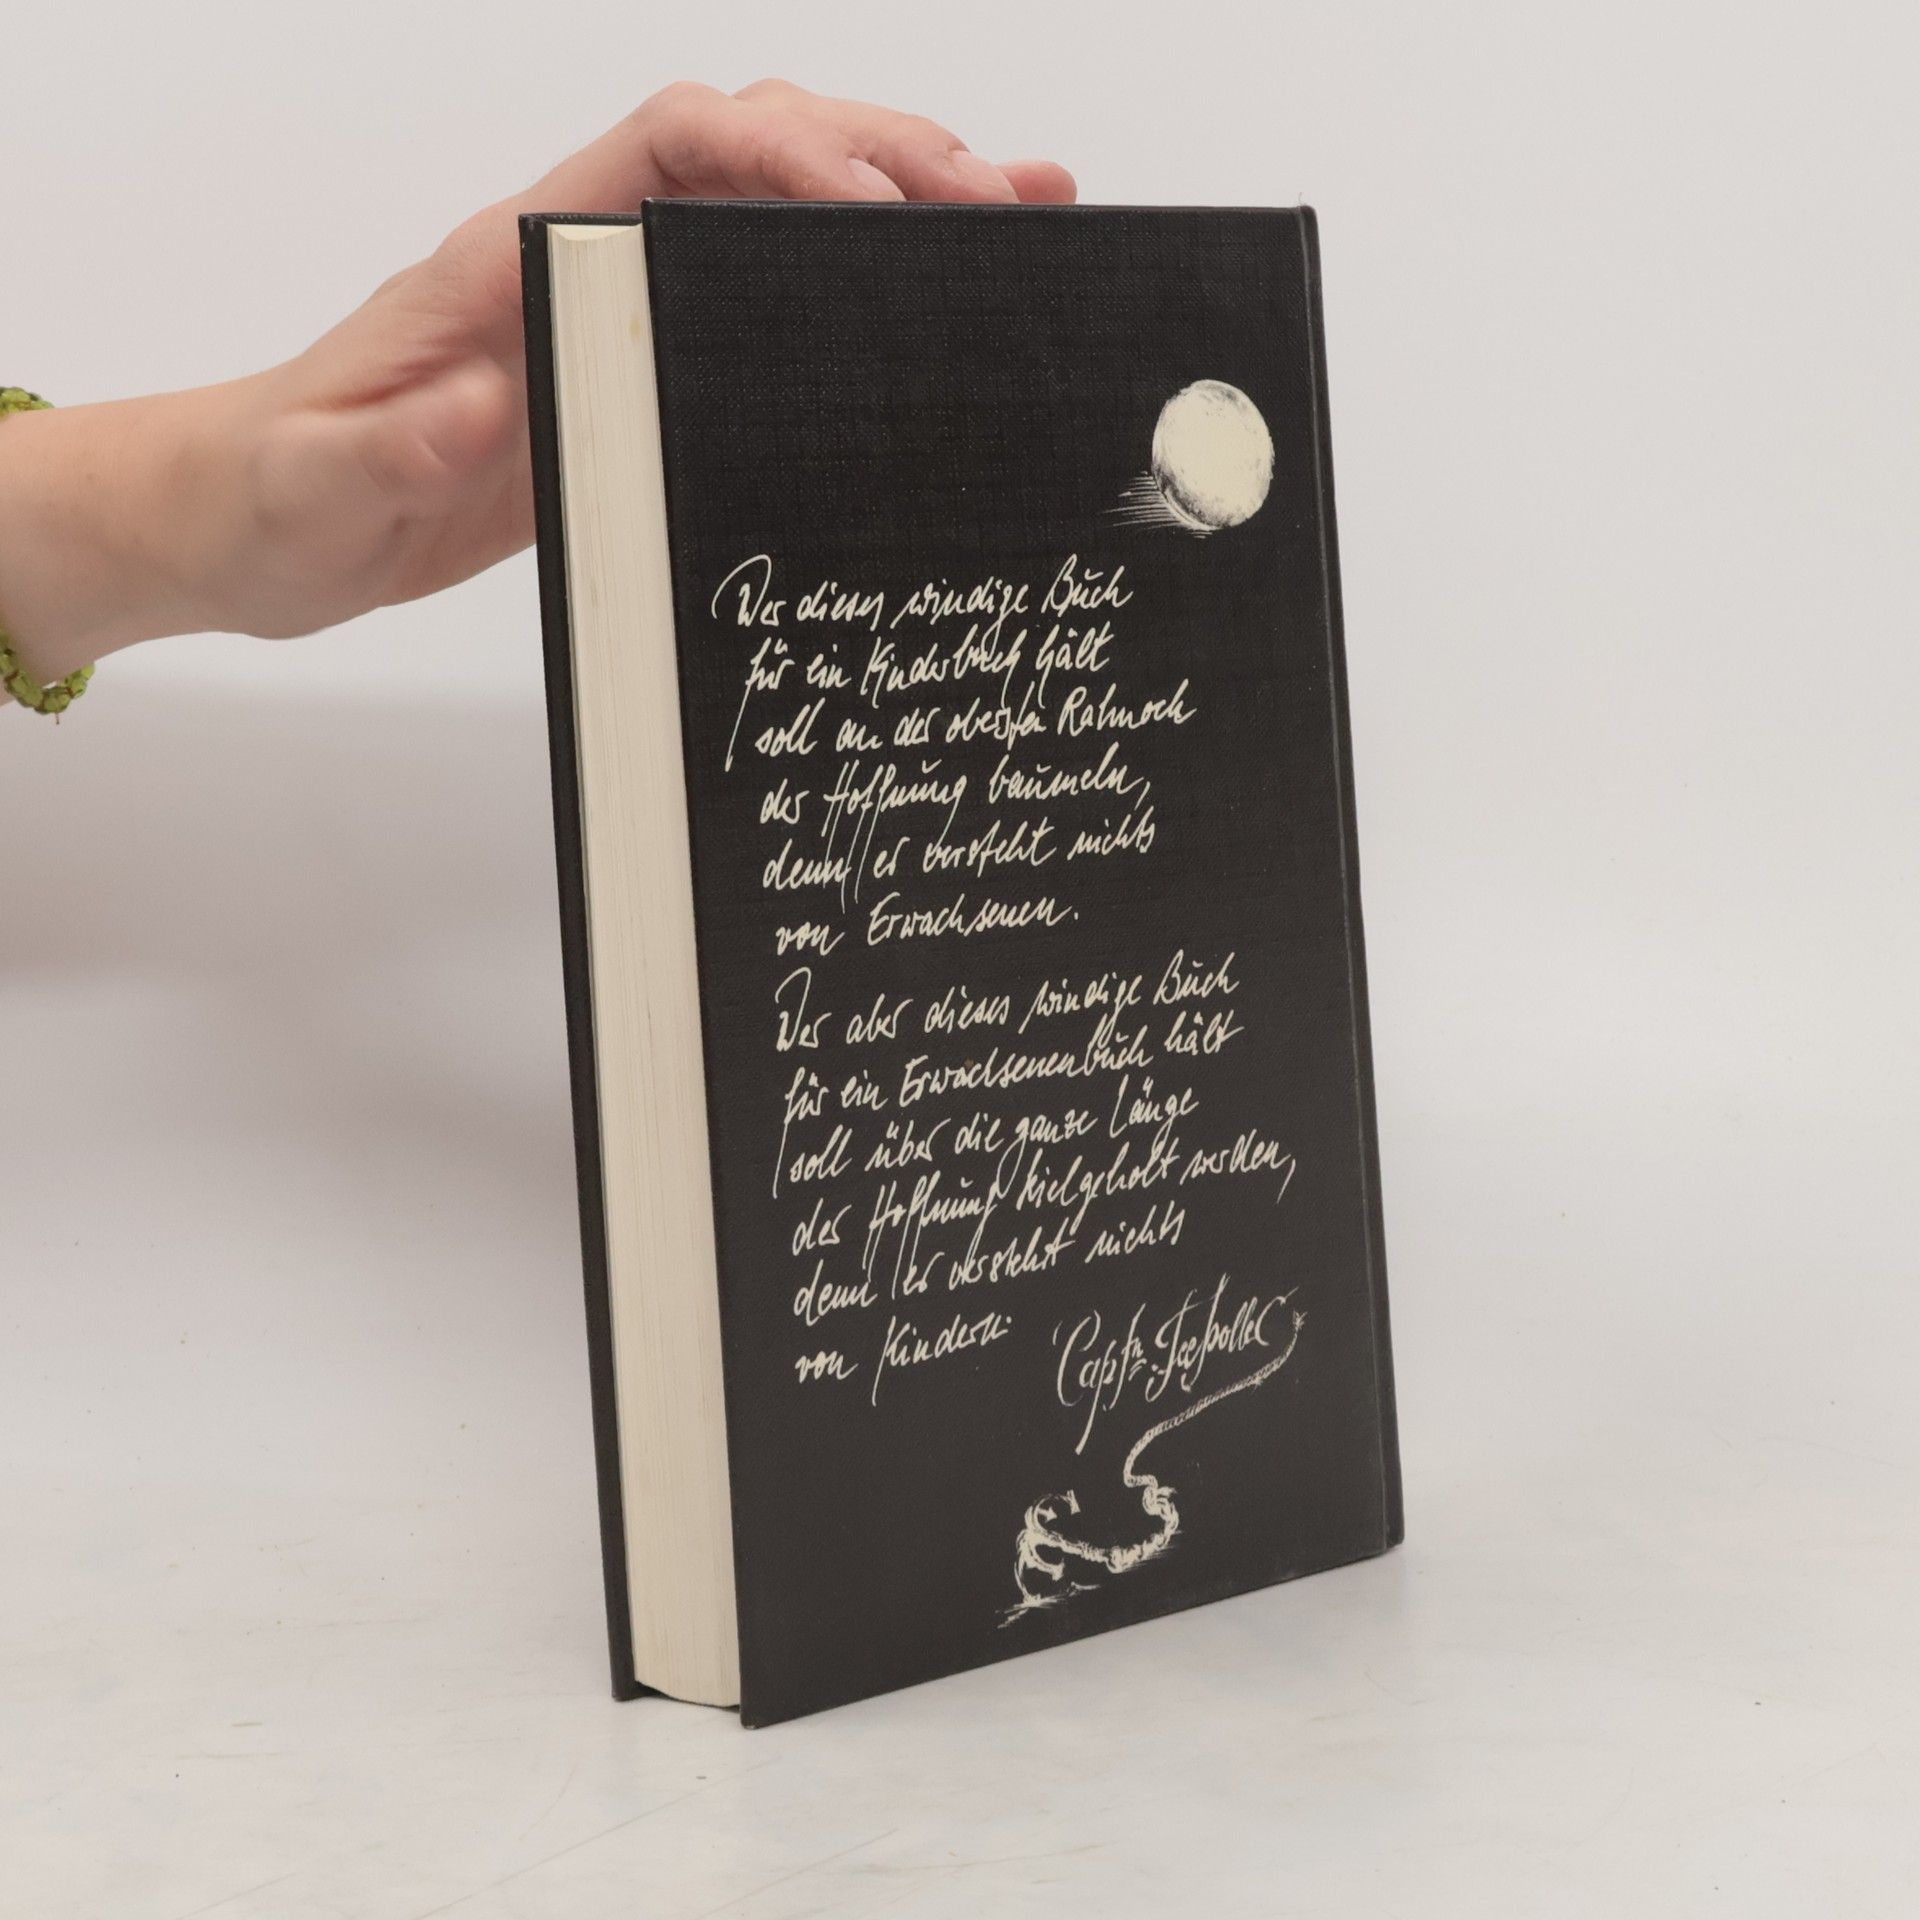 Wer dieses windige Buch
für ein Kinderbuch hält
soll an der obersten Rahnock
der Hoffnung baumeln,
denn er versteht nichts
von Erwachsenen.
Wer aber dieses windige Buch
für ein Erwachsenenbuch hält
soll über die ganze Länge
der Hoffnung kielgeholt werden,
denn er versteht nichts
von Kindern.
Capt'n